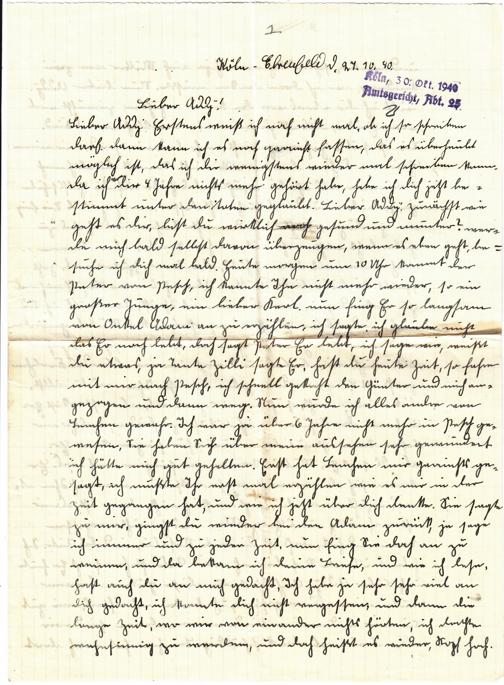 1
Köln - Ehrenfeld d. 27.10.40
Köln, 30. Okt. 1940
Amtsgericht, Abt. 25
Lieber Addi!
Lieber Addi Erstens weiß ich noch nicht mal, ob ich so schreiben
darf, dann kann ich es noch garnicht fassen, das es überhaubt
möglich ist, das ich dir wenigstens wieder mal schreiben kann.
da ich Dir 4 Jahre nichts mehr gehört habe, habe ich dich jetzt be-
stimmt unter den toten geglaubt. Lieber Addi zunächst wie
geht es dir, bist du wirklich noch gesund und munter? wer-
de mich bald selbst davon überzeugen, wenn es eben geht, be=
suche ich dich mal bald. Heute morgen um 10 Uhr kommt der
Peter von Pesch, ich kannte Ihn nicht mehr wieder, so ein
großer Junge, ein lieber Kerl, nun fing Er so langsam
von Onkel Adam an zu erzählen, ich sagte, ich glaube nicht
das Er noch lebt, doch sagt Peter Er lebt, ich sage wie, weißt
du etwas, ja Tante Zilli sagte Er, hast du heute Zeit, so fahre
mit mir nach Pesch, ich schnell gekocht den Günter und mich an-
gezogen und dann weg. Nun wurde ich alles andre von
Lenchen gewahr. Ich war ja über 6 Jahre nicht mehr in Pesch ge-
wesen, Sie haben Sich über mein aussehen sehr gewundert
ich hätte mich gut gehalten. Erst hat Lenchen mir garnichts ge-
sagt, ich mußte Ihr erst mal erzählen wie es mir in der
Zeit gegangen hat, und wie ich jetzt über dich denke. Sie sagt
zu mir, gingst du wieder bei den Adam zurück, ja sage
ich immer und zu jeder Zeit, nun fing Sie doch an zu
weinen, und da bekam ich deine Briefe, und wie ich lese,
hast auch du an mich gedacht, Ich habe ja sehr sehr viel an
dich gedacht, ich konnte dich nicht vergessen, und dann die
lange Zeit, wo wir von einander nichts hörten, ich dachte
wahnsinnig zu werden, und doch heißt es wieder, Kopf hoch.